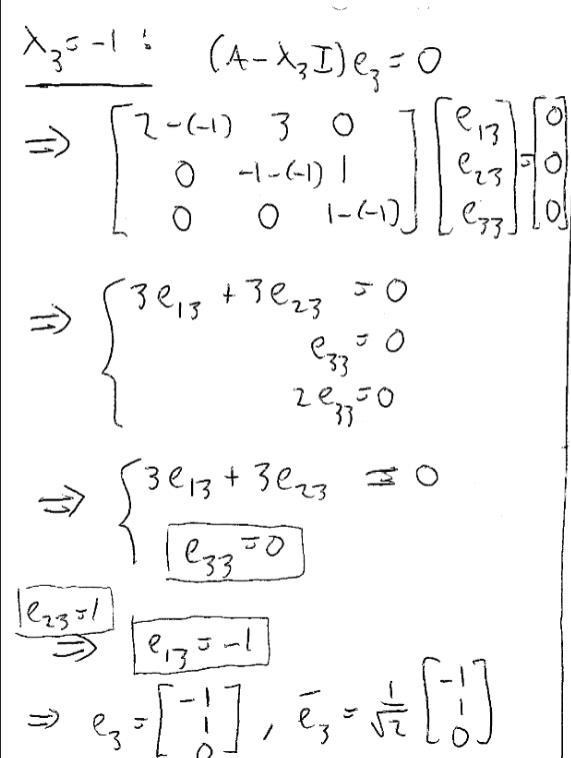 λ₃ = -1 : (A - λ₃I) e₃ = 0
⇒ [2-(-1) 3 0; 0 -1-(-1) 1; 0 0 1-(-1)] [e₁₃; e₂₃; e₃₃] = [0; 0; 0]
⇒ { 3e₁₃ + 3e₂₃ = 0
e₃₃ = 0
2e₃₃ = 0
⇒ { 3e₁₃ + 3e₂₃ = 0
e₃₃ = 0
e₂₃ = 1
⇒ e₁₃ = -1
⇒ e₃ = [-1; 1; 0], ē₃ = 1/√2 [-1; 1; 0]